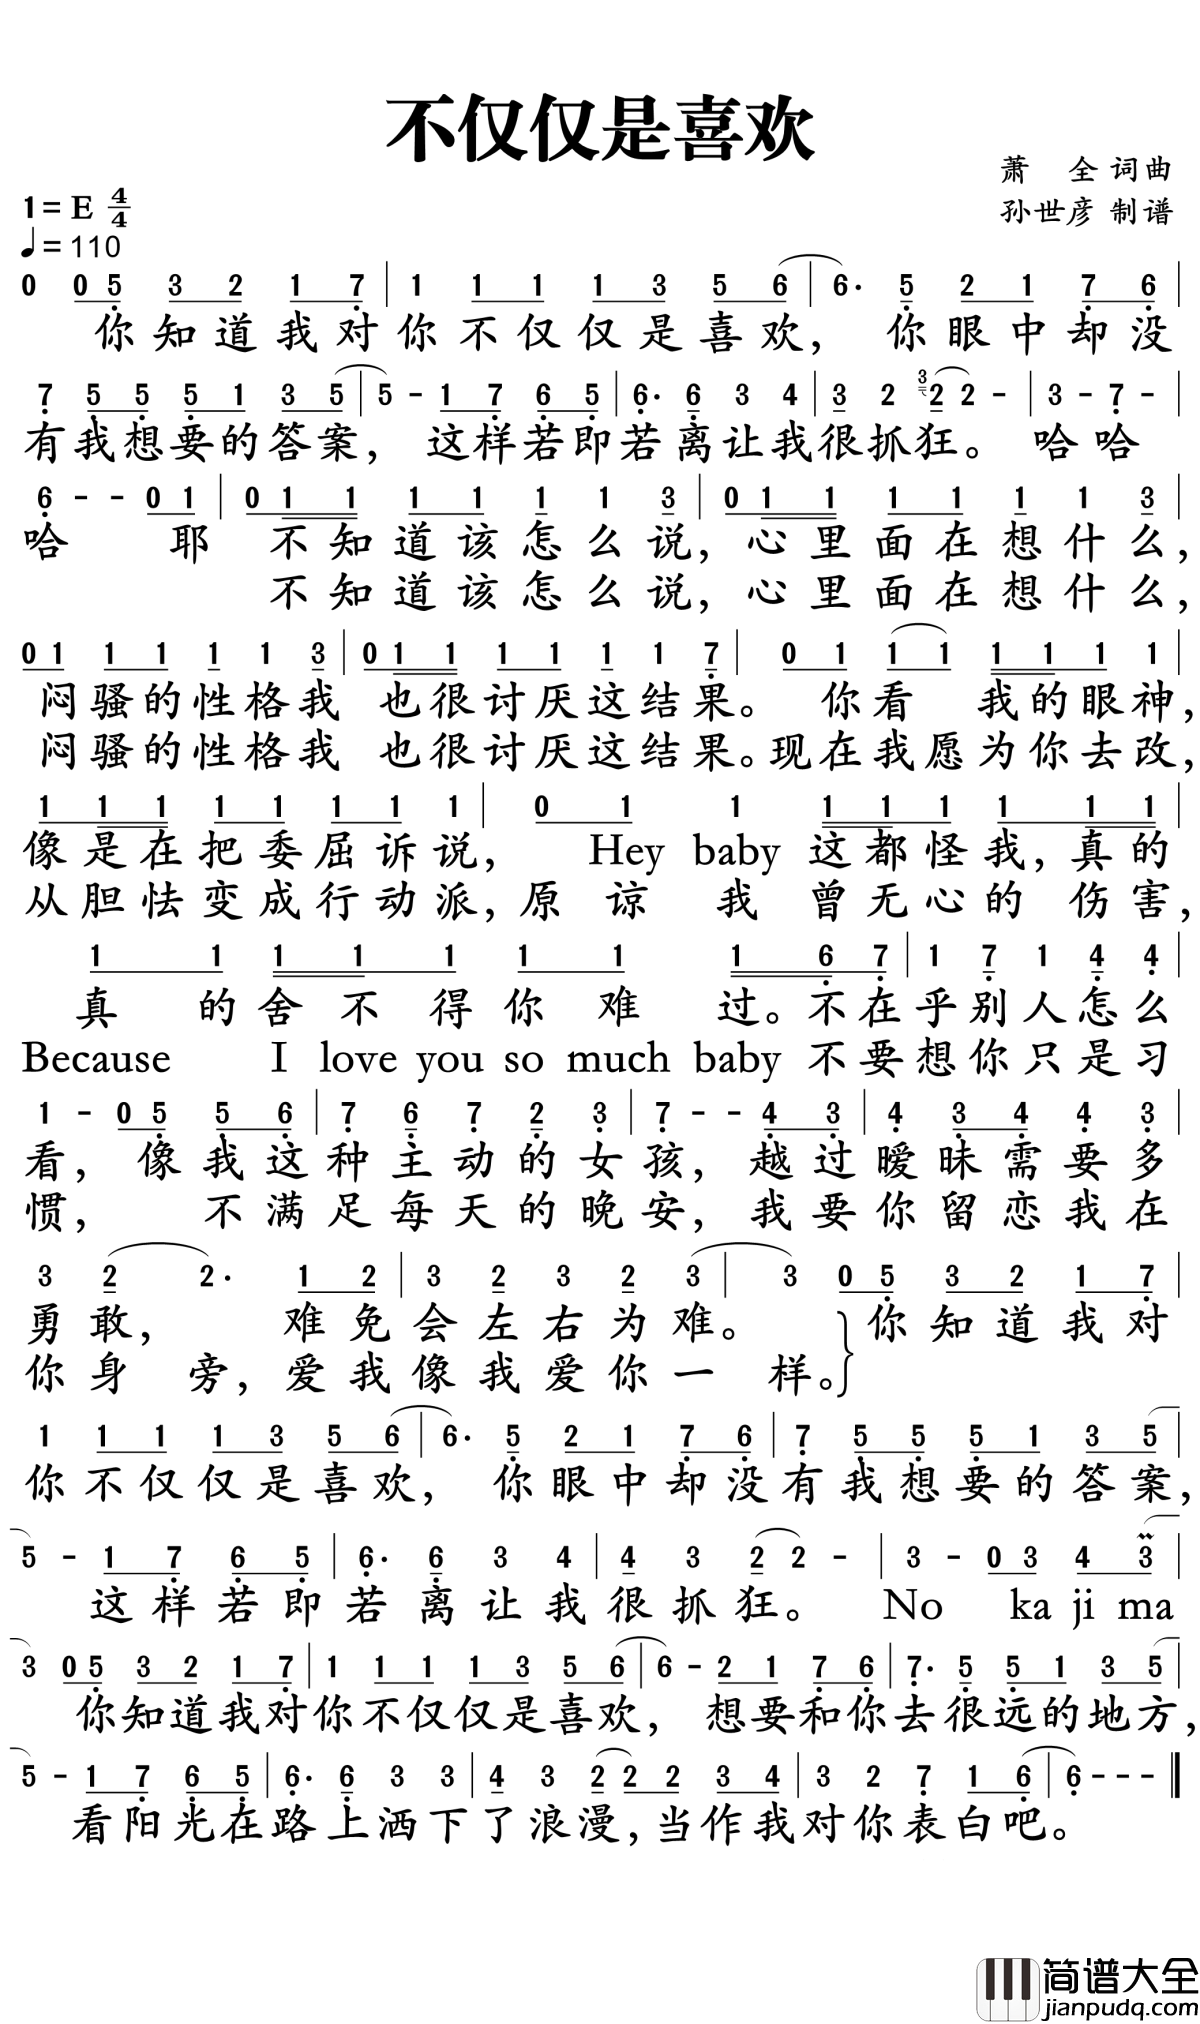 不仅仅是喜欢
萧 全 词曲
孙世彦 制谱
1= E 4/4
♩= 110
0 0 5 3 2 1 7 | 1 1 1 1 3 5 6 | 6· 5 2 1 7 6 |
你知道我对你不仅仅是喜欢， 你眼中却没
7 5 5 5 1 3 5 | 5 - 1 7 6 5 | 6· 6 3 4 | 3 2 3 2 2 - | 3 - 7 - |
有我想要的答案， 这样若即若离让我很抓狂。 哈哈
6 - - 0 1 | 0 1 1 1 1 1 1 3 | 0 1 1 1 1 1 1 3 |
哈 耶 不知道该怎么说，心里面在想什么，
不知道该怎么说，心里面在想什么，
0 1 1 1 1 1 3 | 0 1 1 1 1 1 1 7 | 0 1 1 1 1 1 1 1 |
闷骚的性格我 也很讨厌这结果。 你看 我的眼神，
闷骚的性格我 也很讨厌这结果。现在我愿为你去改，
1 1 1 1 1 1 1 1 | 0 1 1 1 1 1 1 1 1
像是在把委屈诉说， Hey baby 这都怪我，真的
从胆怯变成行动派，原谅我曾无心的伤害，
1 1 1 1 1 1 1 1 6 7 | 1 7 1 4 4
真的舍不得你难过。不在乎别人怎么
Because I love you so much baby 不要想你只是习
1 - 0 5 5 6 | 7 6 7 2 3 | 7 - - 4 3 | 4 3 4 4 3
看， 像我这种主动的女孩，越过暧昧需要多
惯， 不满足每天的晚安，我要你留恋我在
3 2 2· 1 2 | 3 2 3 2 3 | 3 0 5 3 2 1 7
勇敢， 难免会左右为难。 你知道我对
你身旁，爱我像我爱你一样。
1 1 1 1 3 5 6 | 6· 5 2 1 7 6 | 7 5 5 5 1 3 5 |
你不仅仅是喜欢， 你眼中却没有我想要的答案，
5 - 1 7 6 5 | 6· 6 3 4 | 4 3 2 2 - | 3 - 0 3 4 3 |
这样若即若离让我很抓狂。 No ka ji ma
3 0 5 3 2 1 7 | 1 1 1 1 3 5 6 | 6 - 2 1 7 6 | 7· 5 5 1 3 5 |
你知道我对你不仅仅是喜欢， 想要和你去很远的地方，
5 - 1 7 6 5 | 6· 6 3 3 | 4 3 2 2 2 3 4 | 3 2 7 1 6 | 6 - - - ‖
看阳光在路上洒下了浪漫，当作我对你表白吧。
简谱大全
jianpudq.com